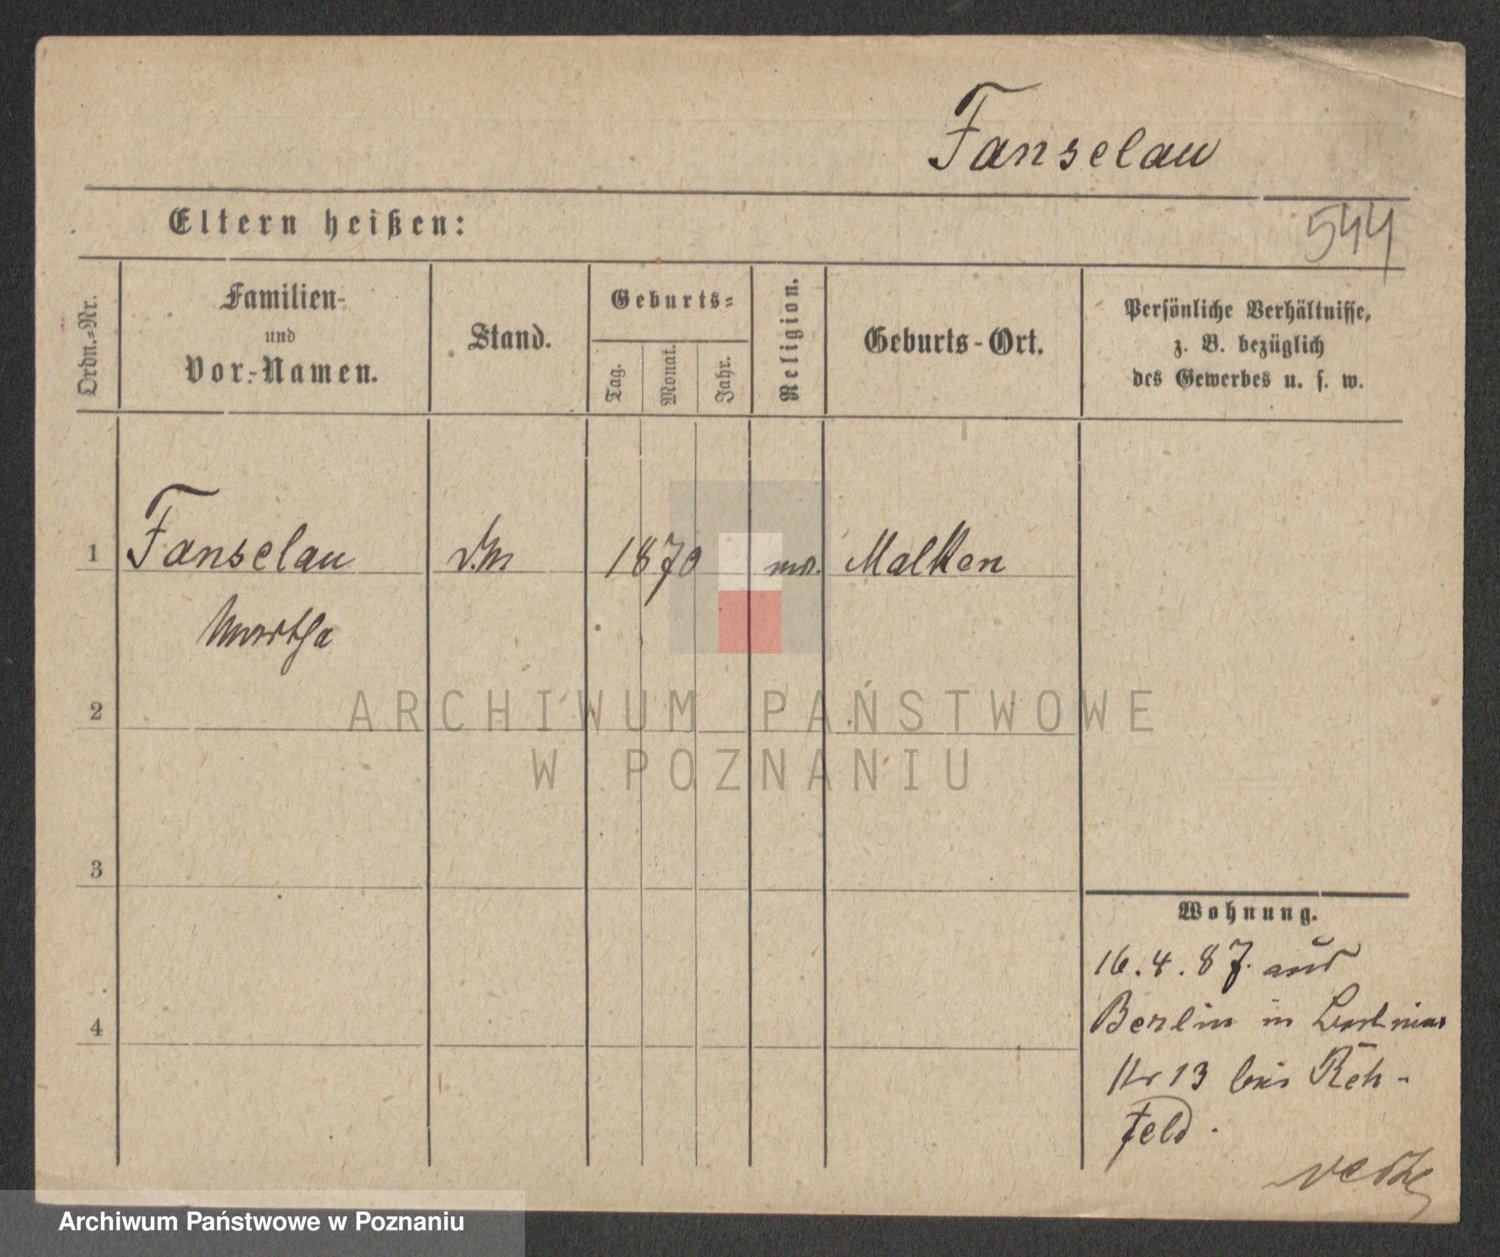 Fanselau
Eltern heißen:
544
Ordn.-Nr.
Familien-
und
Vor-Namen.
Stand.
Geburts-
Tag.
Monat.
Jahr.
Religion.
Geburts-Ort.
Persönliche Verhältnisse,
z. B. bezüglich
des Gewerbes u. s. w.
1
Fanselau
1870
Malken
Martha
2
ARCHIWUM PAŃSTWOWE
W POZNANIU
3
Wohnung.
16.4.87. aus
Berlin in
4
Nr 13 bei Reh-
feld.
Archiwum Państwowe w Poznaniu